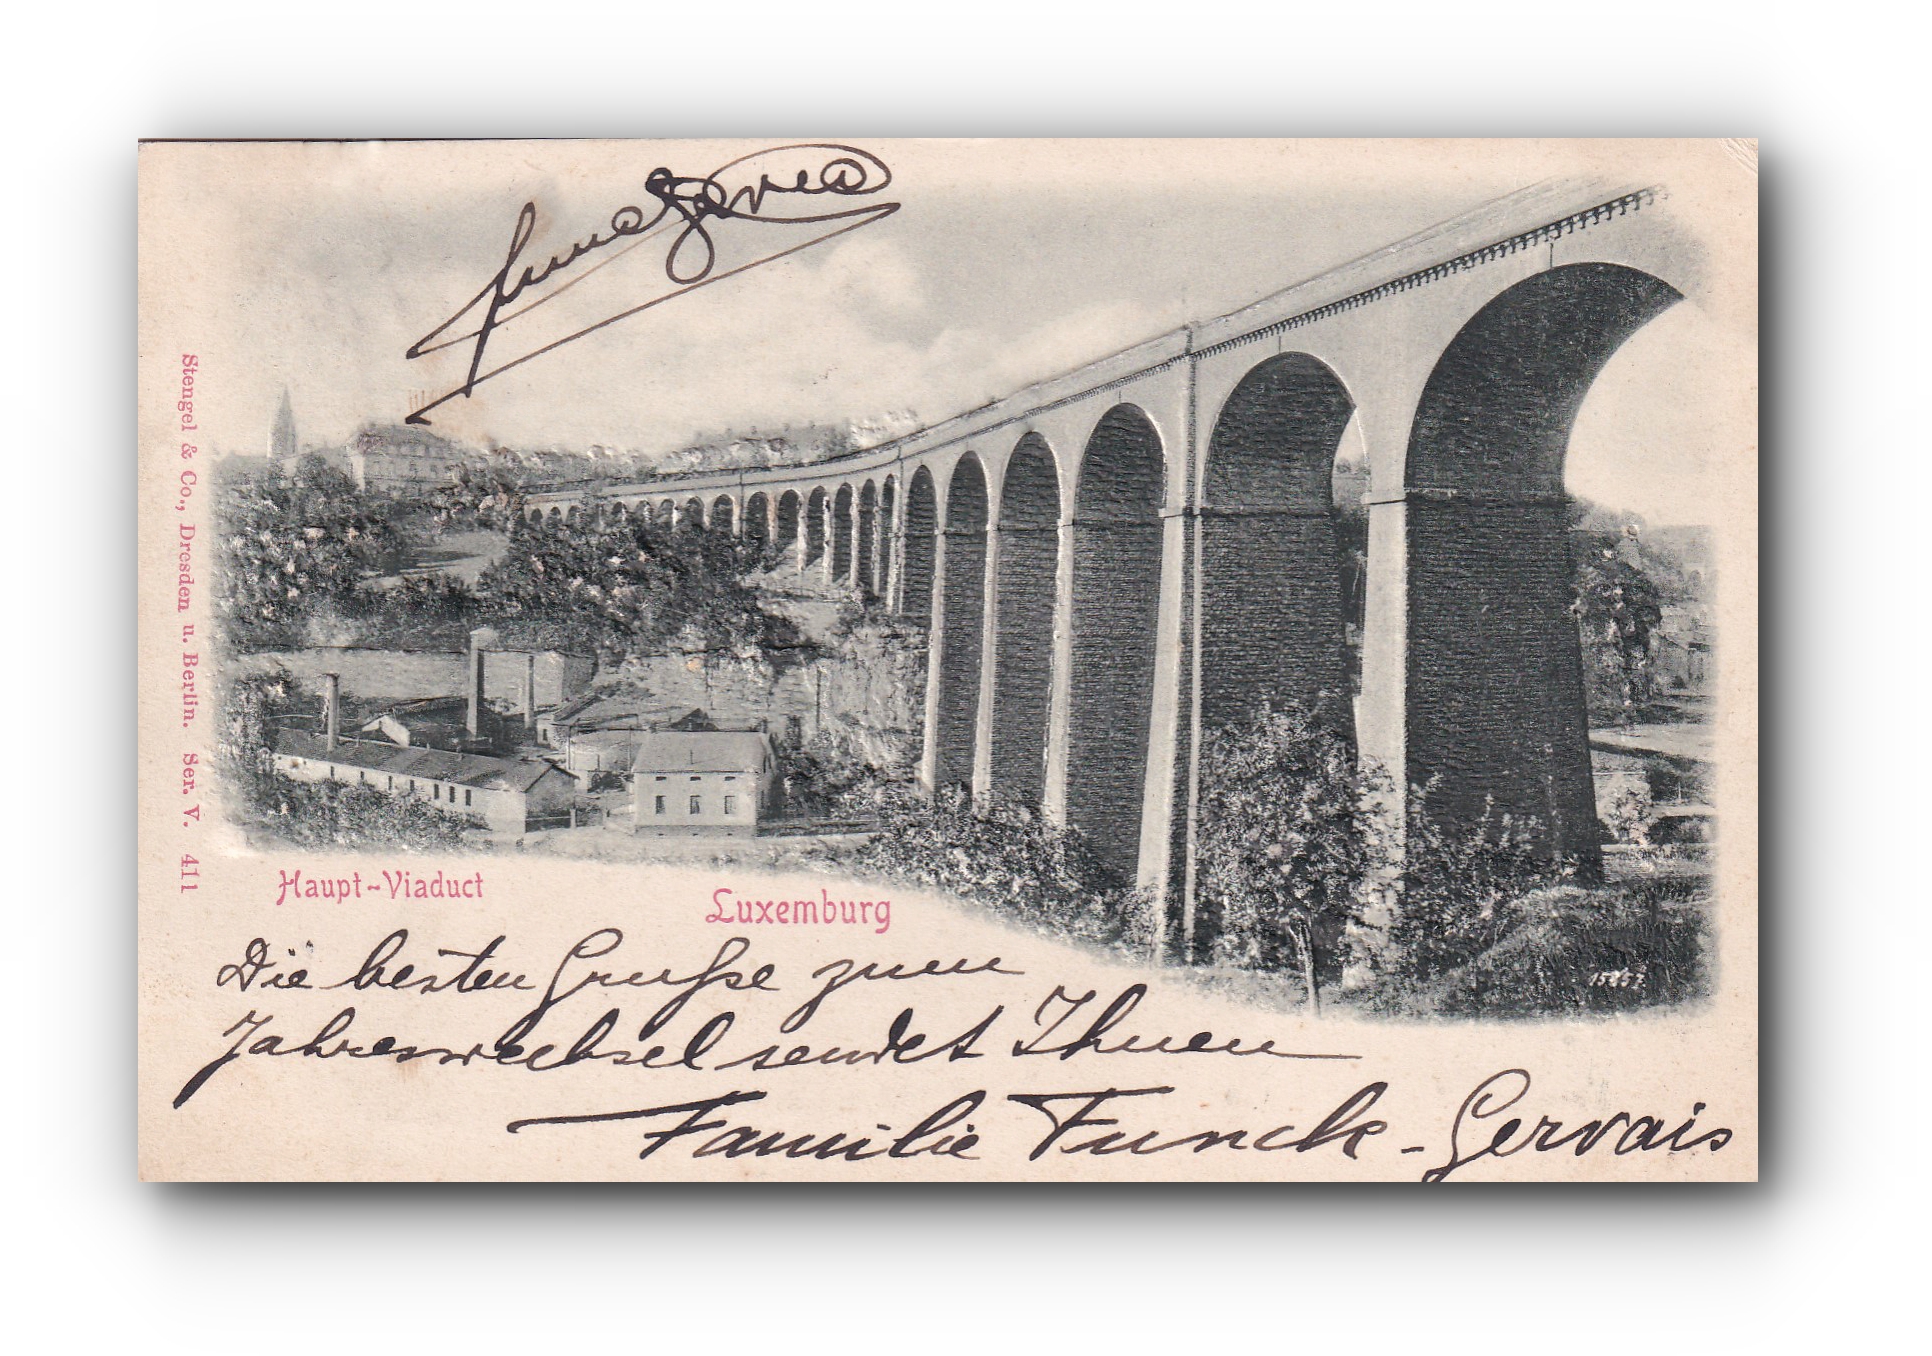 Stengel & Co., Dresden u. Berlin. Ser. V. 411
Haupt-Viaduct
Luxemburg
Die besten Gruße zum
Jahreswechsel sendet Ihnen
Familie Funck-Gervais